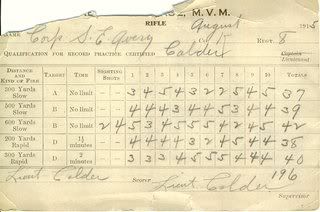 M. V. M.
RIFLE August 1915
NAME Corp S. E. Avery Co. REGT. 8
QUALIFICATION FOR RECORD PRACTICE CERTIFIED Calder Captain Lieutenant
DISTANCE AND KIND OF FIRE TARGET TIME SIGHTING SHOTS 1 2 3 4 5 6 7 8 9 10 TOTALS
300 Yards Slow A No limit 3 4 5 4 3 2 2 5 4 5 37
500 Yards Slow B No limit 4 4 4 3 4 4 5 3 4 4 39
600 Yards Slow B No limit 2 4 5 3 4 5 5 5 4 2 4 5 42
200 Yards Rapid D 1½ minutes 4 4 4 4 3 2 4 5 4 4 38
300 Yards Rapid D 2 minutes 3 3 3 4 5 5 5 4 4 4 40
Lieut Calder Scorer 196
Lieut. Calder Supervisor